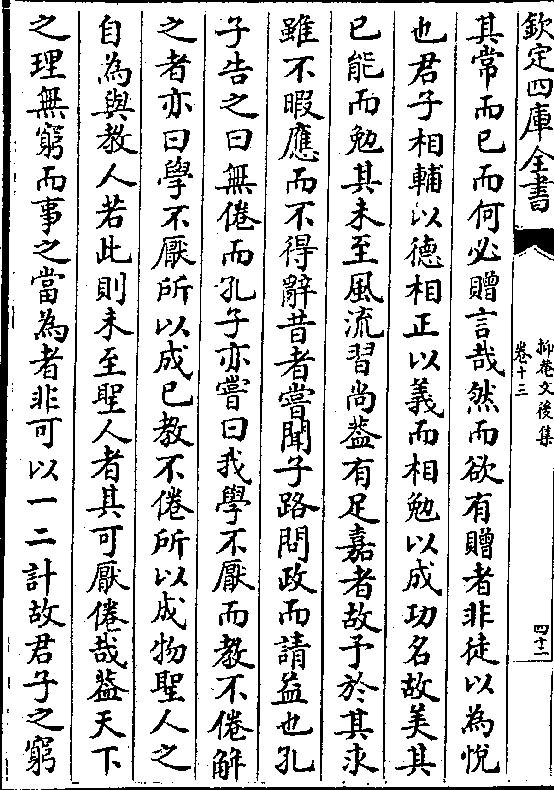 欽定四庫全書
抑菴文後集
卷十三
四十二
其常而已而何必贈言哉然而欲有贈者非徒以為悅
也君子相輔以德相正以義而相勉以成功名故美其
已能而勉其未至風流習尚葢有足嘉者故予於其求
雖不暇應而不得辭昔者嘗聞子路問政而請益也孔
子告之曰無倦而孔子亦嘗曰我學不厭而教不倦解
之者亦曰學不厭所以成已教不倦所以成物聖人之
自為與教人若此則未至聖人者其可厭倦哉葢天下
之理無窮而事之當為者非可以一二計故君子之窮